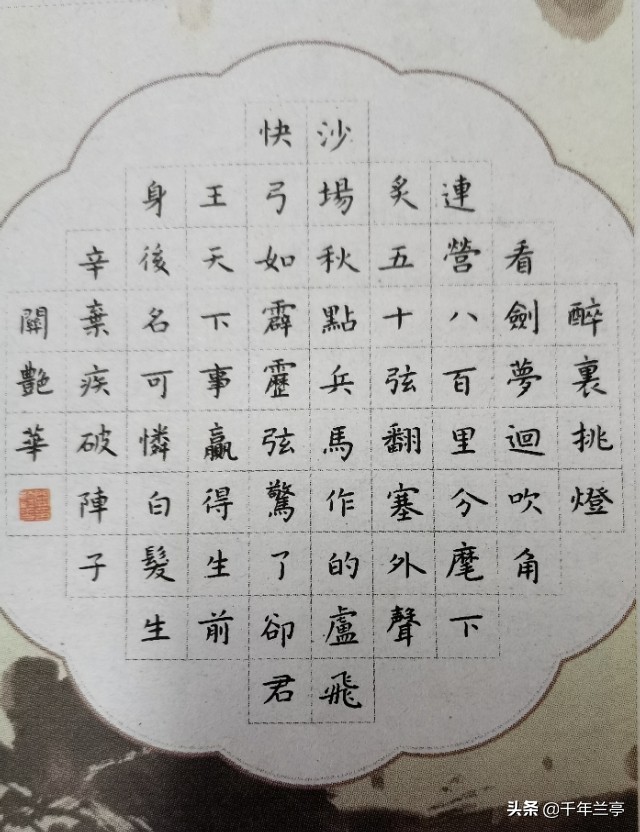 醉裏挑燈
看劍夢迴吹角
連營八百里分麾下
炙五十弦翻塞外聲
沙場秋點兵馬作的盧飛
快弓如霹靂弦驚了卻君
王天下事贏得生前
身後名可憐白髮生
辛棄疾破陣子
關艷華
头条 @千年兰亭